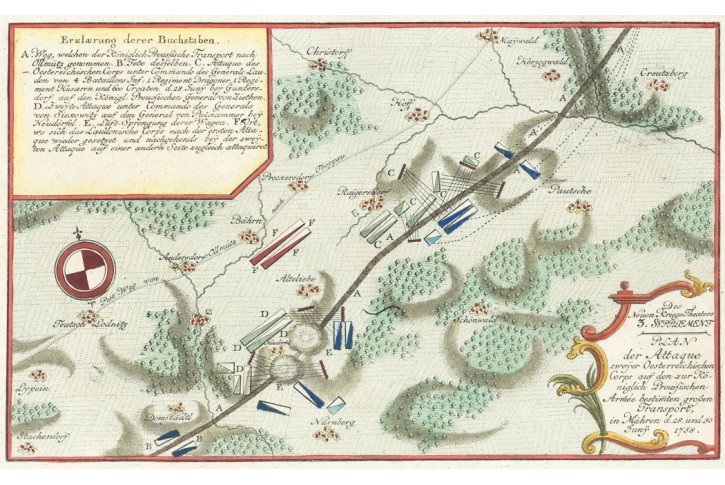 Erklærung derer Buchstaben.
A. Weg, welchen der Königlich Preussische Transport nach
Ollmütz genommen. B. Tete desselben. C. Attaque des
Oesterreichischen Corps unter Commando des Generals Lau-
don von 4 Bataillons Inf. 1 Regiment Dragoner, 1 Regi-
ment Husaren und 600 Croaten d. 28. Juny bey Gunters-
dorf auf den Königl. Preussischen General von Ziethen.
D. Zweyte Attaque unter Commando des Generals
von Siskowitz auf den General von Putkammer bey
Neudörfel. E. Auff-Sprengung derer Wagen. F. Ort,
wo sich das Laudonische Corps nach der ersten Atta-
que wieder gesetzt und nachgehends bey der zwey-
ten Attaque auf einer andern Seite zugleich attaquiret
Christorff
Maywald
Herzogwald
Creutzberg
Hoff
A
C
Prosnersdorf
nach
Troppau
Raigersdorf
Pautsche
C
C
C
A
Bährn
F
F
F
F
Andersdorf
Ollmütz
Post Weg von
Alteliebe
A
Teutsch Lodnitz
D
D
Neudorfel
Schönwald
D
D
E
E
Lippein
A
Domstädtl
Nürnberg
Stachendorf
B
B
Des
Neuen Kriegs-Theaters
3. SUPPLEMENT
PLAN
der Attaque
zweyer Oesterreichischen
Corps auf den zur Kö-
niglich Preussischen
Armée bestimten großen
Transport,
in Mähren d. 28. und 30
Juny 1758.